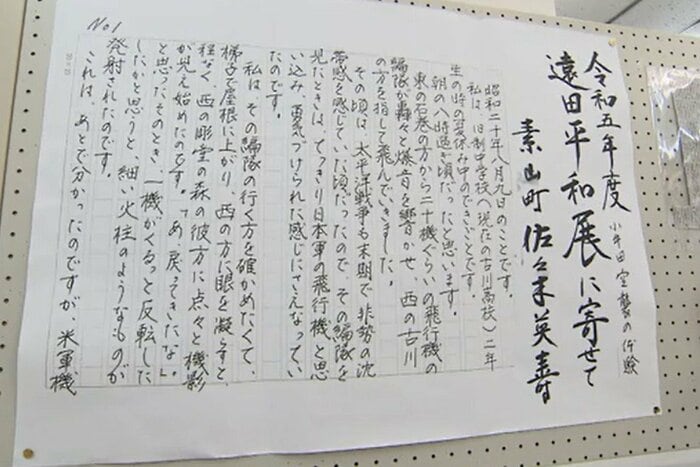 令和五年度
遠田平和展に寄せて
小牛田空襲の体験
素山町 佐々木英壽
No1
昭和二十年八月九日のことです。
私は、旧制中学校(現在の古川高校)二年
生の時の夏休み中のできごとです。
朝の八時過ぎ頃だったと思います。
東の石巻の方から二十機ぐらいの飛行機の
編隊が轟々と爆音を響かせ、西の古川
の方を指して飛んでいきました。
その頃は、太平洋戦争も末期で、非勢の沈
滞感を感じていた頃だったので、その編隊を
見たときは、てっきり日本軍の飛行機と思
い込み、勇気づけられた感じにさえなってい
たのです。
私は、その編隊の行く方を確かめたくて、
梯子で屋根に上がり、西の方に眼を凝らすと、
程なく、西の彫堂の森の彼方に点々と機影
が見え始めたのです。「あ、戻ってきたな」
と思ったそのとき、一機がくるっと反転した
したかと思うと、細い火柱のようなものが
発射されたのです。
これは、あとで分かったのですが、米軍機